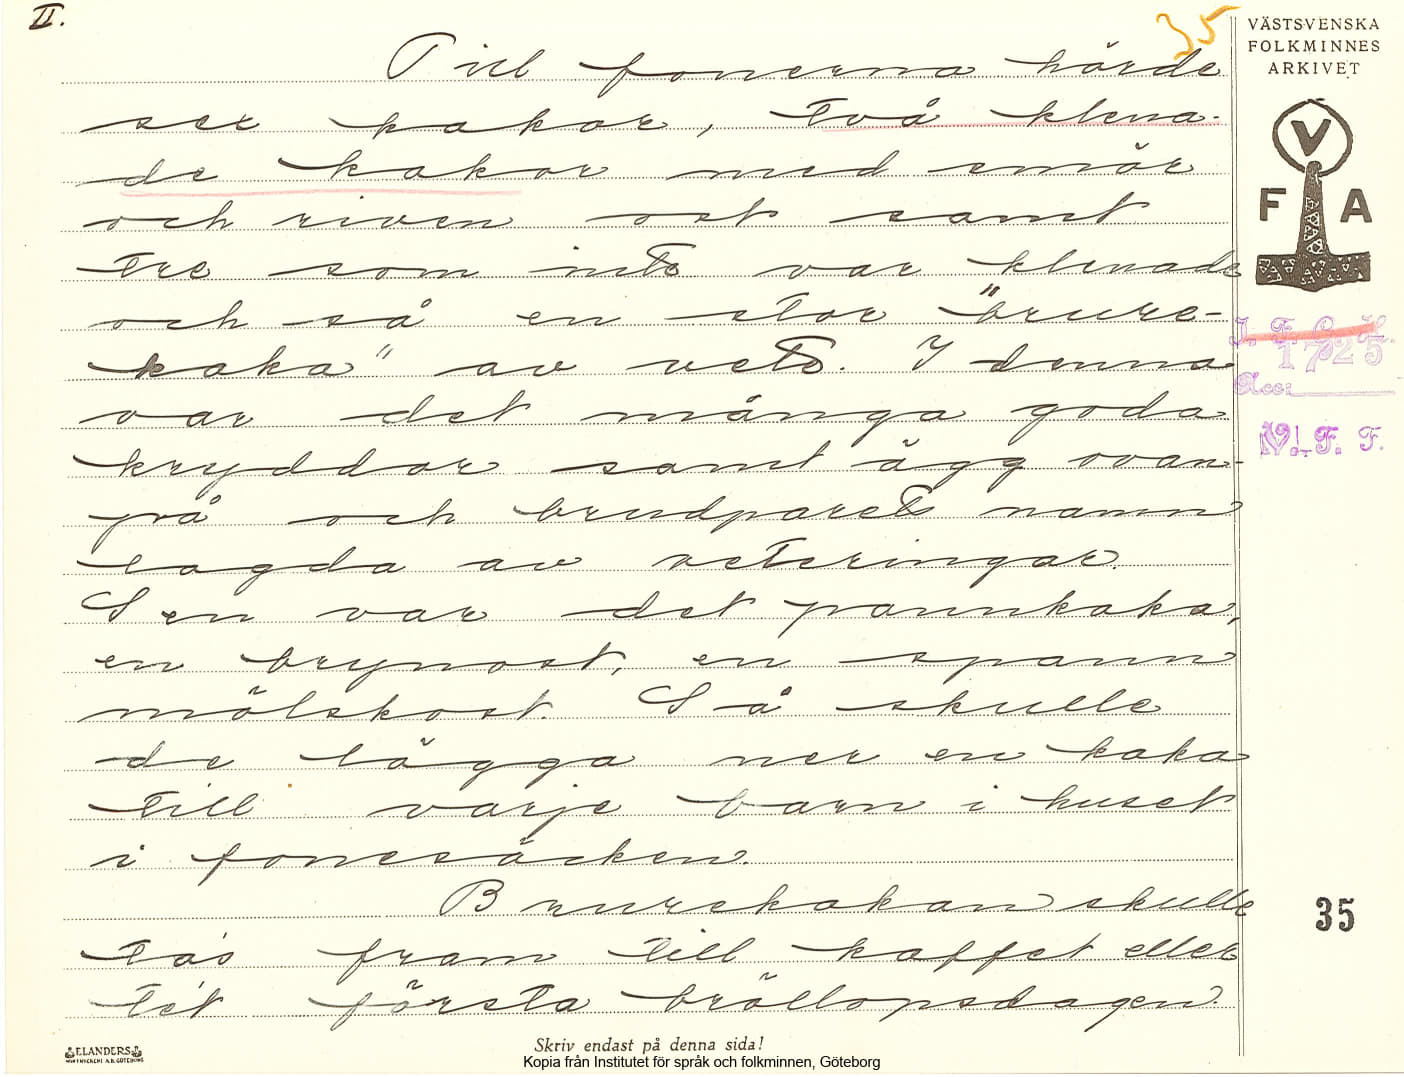 II.
35
VÄSTSVENSKA
FOLKMINNES
ARKIVET
V
F A
Till fonerna hörde
sex kakor, två klena-
de kakor med smör
och riven ost samt
tre som inte var klenade
och så en stor "brure-
kaka" av vete. I denna
var det många goda
kryddor samt ägg ovan-
på och brudparets namn
lagda av veteringar.
Sen var det pannkaka,
en brynost, en spann
mölskost. Så skulle
de lägga ner en kaka
till varje barn i huset
i fonesäcken.
Brurekakan skulle
tas fram till kaffet eller
tét första bröllopsdagen
I. F. G. H.
1725
Acc:
V. F. F.
35
ELANDERS
Skriv endast på denna sida!
Kopia från Institutet för språk och folkminnen, Göteborg